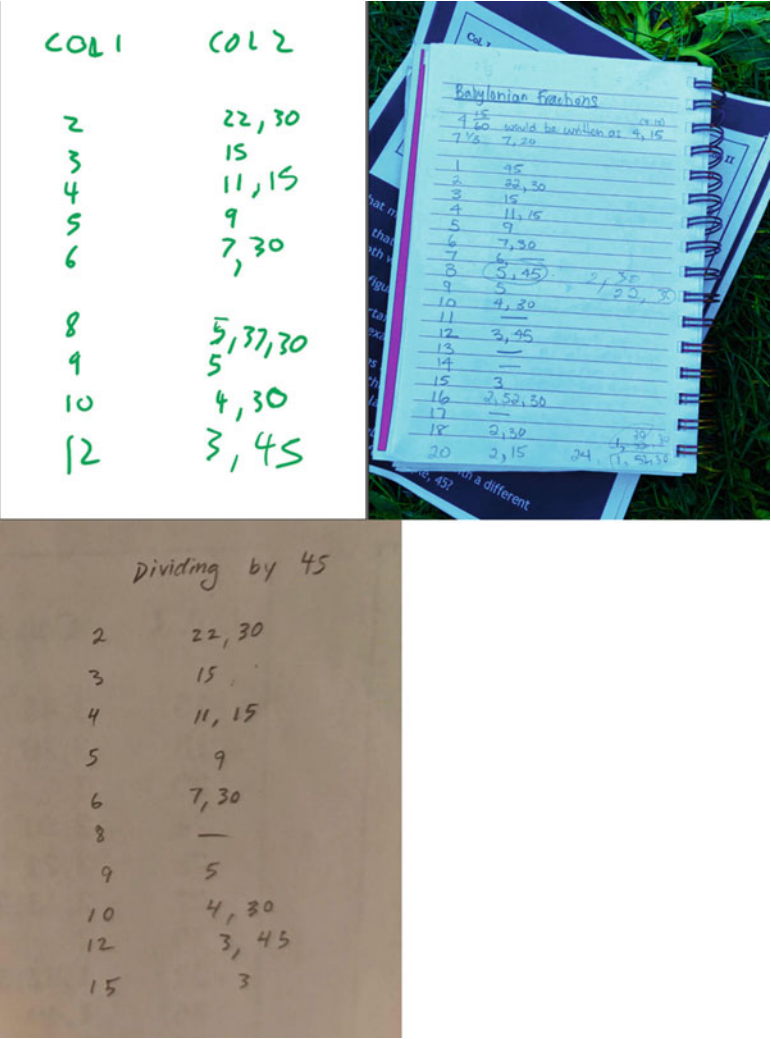 COL 1 COL 2
2 22,30
3 15
4 11,15
5 9
6 7,30
8 5,37,30
9 5
10 4,30
12 3,45
COL I
II
Babylonian Fractions
4 15/60 would be written as 4,15
7 1/3 7,20
1 45
2 22,30
3 15
4 11,15
5 9
6 7,30
7 6, —
8 5,45
9 5
10 4,30
11 —
12 3,45
13 —
14 —
15 3
16 2,52,30
17 —
18 2,30
20 2,15 24
2,30
22,30
hat m
that
figu
exa
with a different
te, 45?
Dividing by 45
2 22,30
3 15
4 11,15
5 9
6 7,30
8 —
9 5
10 4,30
12 3,45
15 3